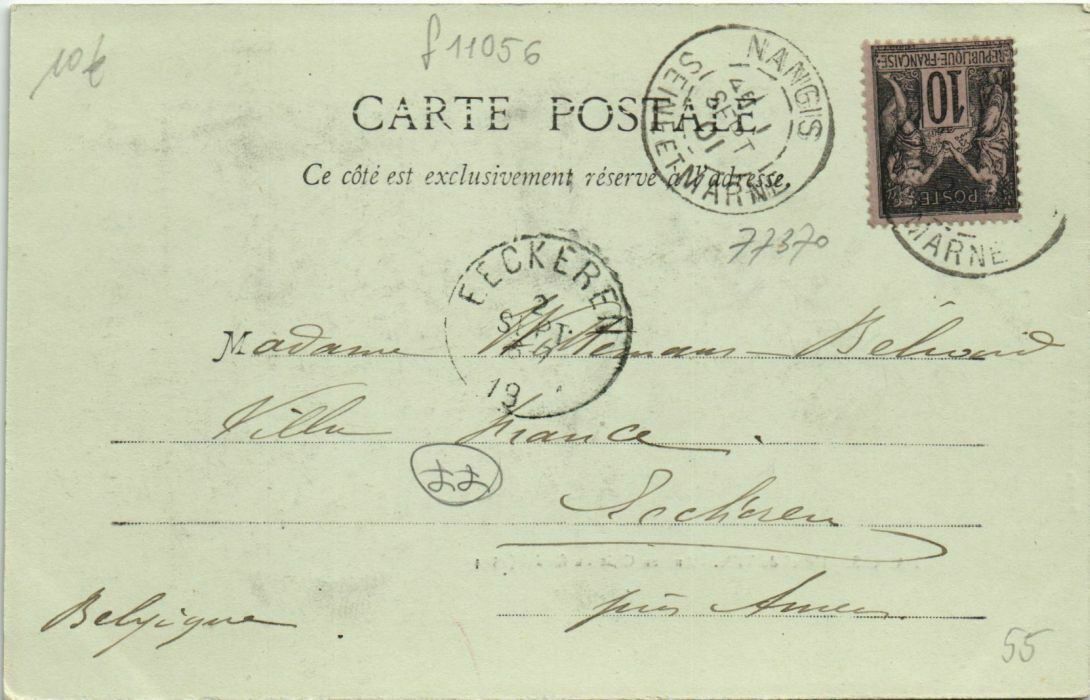 10€
f 11056
CARTE POSTALE
Ce côté est exclusivement réservé à l'adresse.
NANGIS
SEPT
01
SEINE-ET-MARNE
RÉPUBLIQUE-FRANÇAISE
10
POSTE
MARNE
77370
EECKEREN
2
SEPT
19
Madame
Villa France.
22
Eeckeren
près Anvers
Belgique
55